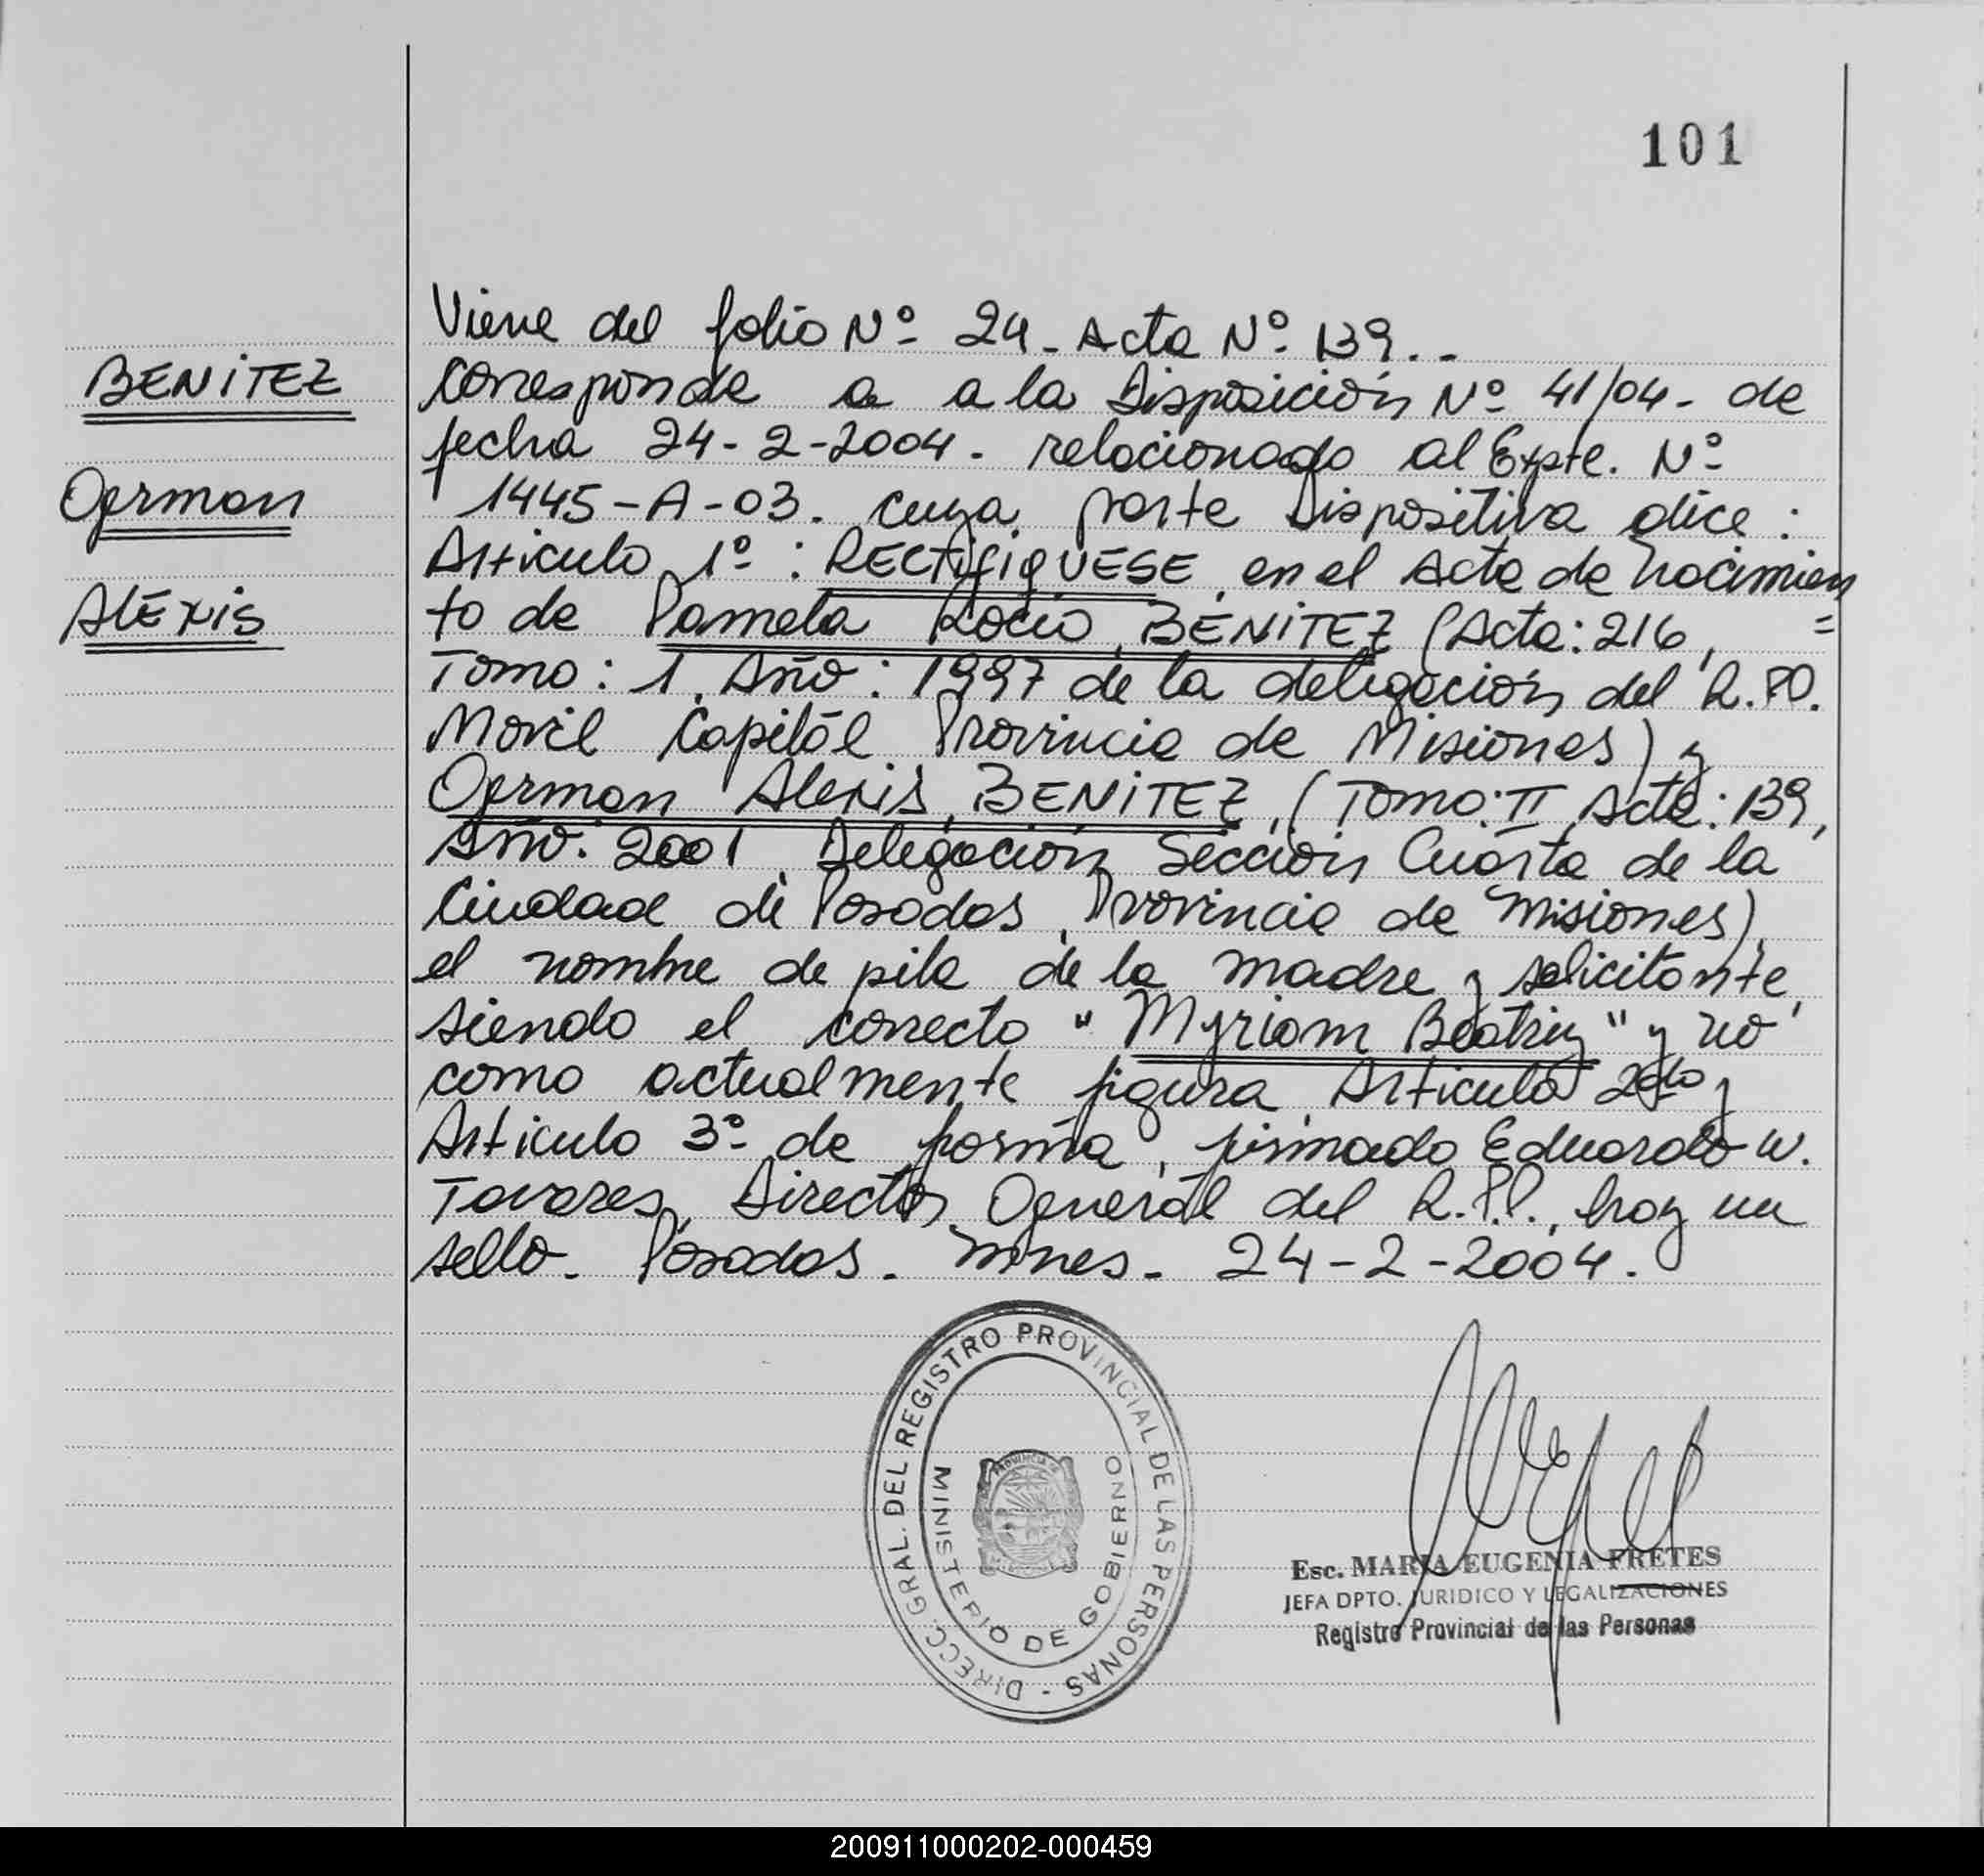 101
BENITEZ
German
Alexis
Viene del folio Nº 24 - Acta Nº 139. -
Corresponde a a la Disposición Nº 41/04 - de
fecha 24-2-2004 - relacionado al Expte. Nº
1445-A-03. cuya parte Dispositiva dice :
Articulo 1º : RECTifiqUESE en el Acta de nacimien
to de Pamela Rocio BENITEZ (Acta: 216, =
Tomo: 1, Año: 1997 de la delegación del R.P.P.
Movil Capital Provincia de Misiones) y
German Alexis BENITEZ, (Tomo: II Acta: 139,
Año: 2001 Delegación Sección Cuarta de la
Ciudad de Posadas, Provincia de Misiones),
el nombre de pila de la madre y solicitante,
siendo el correcto "Myriam Beatriz" y no
como actualmente figura, Articulo 2do y
Articulo 3º de forma, firmado Eduardo W.
Tavares, Director General del R.P.P., hay un
sello - Posadas - Mnes - 24-2-2004.
DIRECC. GRAL. DEL REGISTRO PROVINCIAL DE LAS PERSONAS -
MINISTERIO DE GOBIERNO
PROVINCIA DE
MISIONES
Esc. MARIA EUGENIA FRETES
JEFA DPTO. JURIDICO Y LEGALIZACIONES
Registro Provincial de las Personas
200911000202-000459